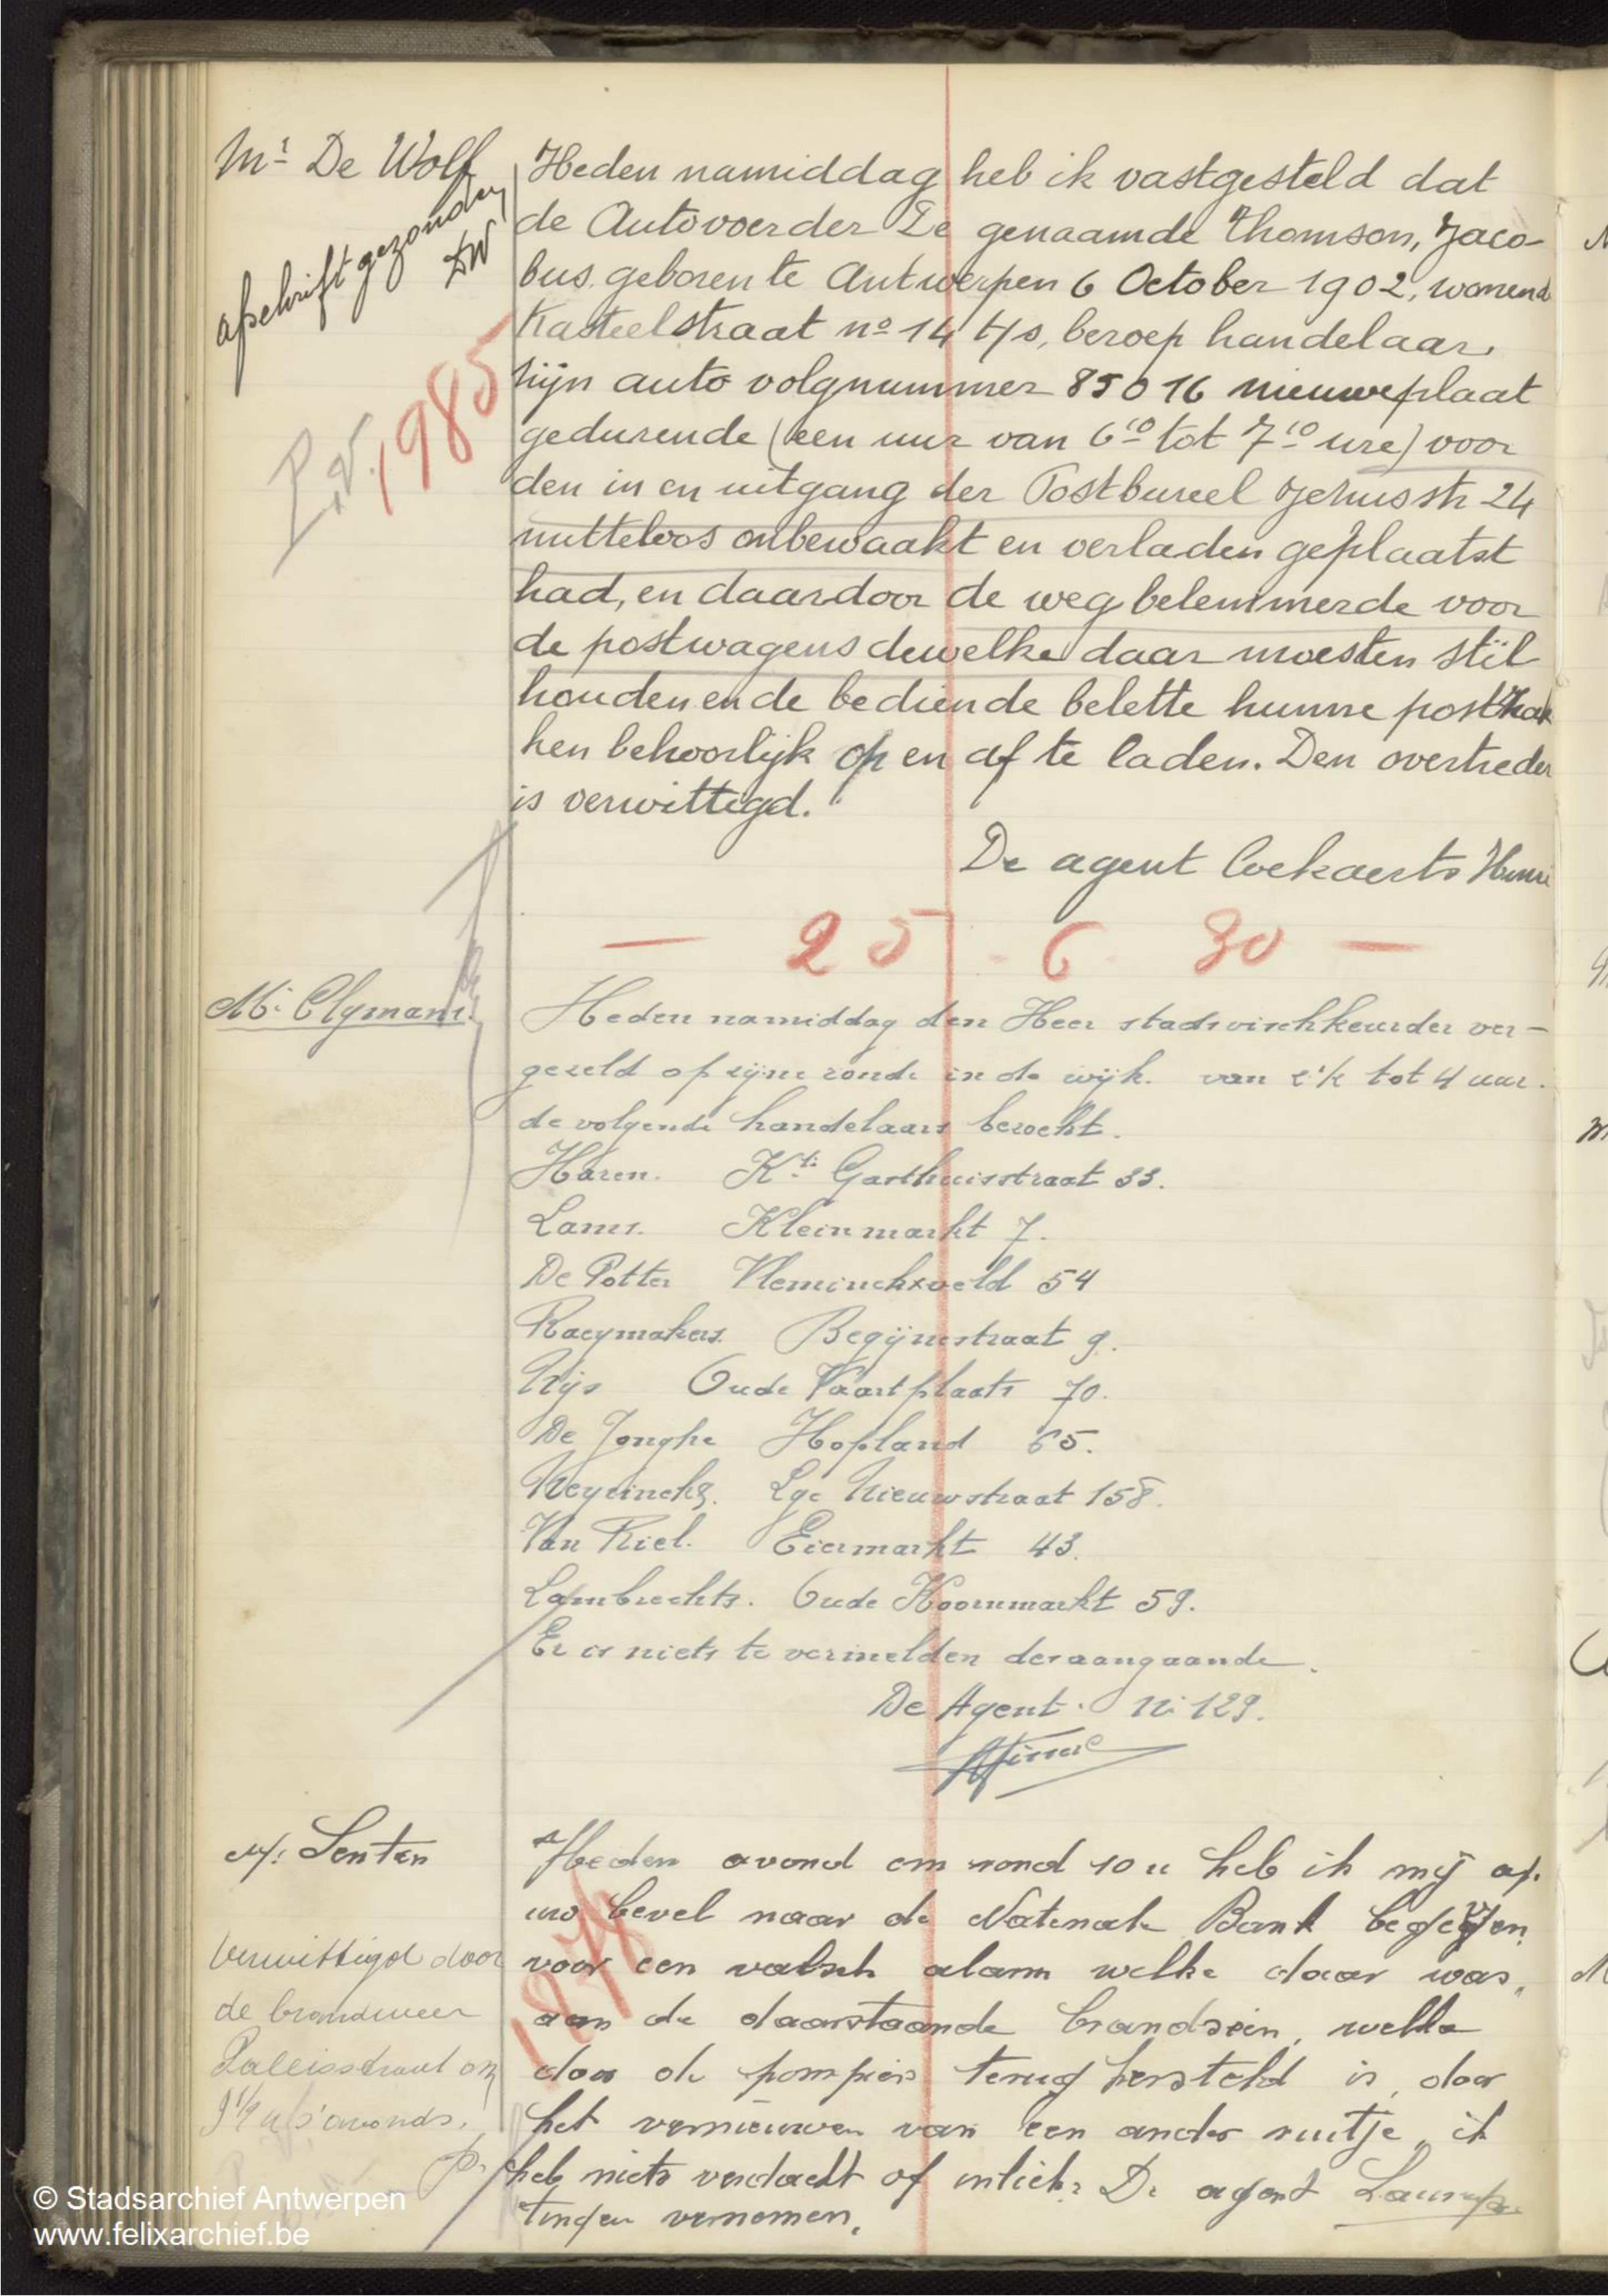 Mr De Wolf
afschrift gezonden
DW
P.V. 1985
Heden namiddag heb ik vastgesteld dat
de Autovoerder De genaamde Thomson, Jaco-
bus. geboren te Antwerpen 6 October 1902, wonend
Kasteelstraat no 14 t/s, beroep handelaar,
zijn auto volgnummer 85016 nieuwe plaat
gedurende (een uur van 6 10 tot 7 10 ure) voor
den in en uitgang der Postbureel Jezusstr 24
nutteloos onbewaakt en verladen geplaatst
had, en daardoor de weg belemmerde voor
de postwagens dewelke daar moesten stil
houden en de bediende belette hunne postzak
ken behoorlijk op en af te laden. Den overtreder
is verwittigd.
De agent Coekaerts Henri
— 25 - 6 - 30 —
Mr Clymans.
Heden namiddag den Heer stadsvischkeurder ver-
gezeld op zijne ronde in de wijk. van tot 4 uur.
de volgende handelaars bezocht.
Haren. Kte Gasthuisstraat 33.
Lams. Kleinmarkt 7.
De Potter Vleminckxveld 54
Raeymakers. Begijnestraat 9.
Nijs Oude Vaartplaats 70.
De Jonghe Hopland 65.
Lge Nieuwstraat 158.
Van Riel. Eiermarkt 43.
Lambrechts. Oude Koornmarkt 59.
Er is niets te vermelden deraangaande.
De Agent. N: 129.
Mr Senten
Verwittigd door
de brandweer
Paleisstraat om
9 1/2 u 's avonds.
1978
Heden avond om rond 10 u heb ik mij op
uw bevel naar de Nationale Bank begeven
voor een valsch alarm welke daar was,
aan de daarstaande brandsein, welke
door de pompiers terug hersteld is, door
het vernieuwen van een ander ruitje, ik
heb niets verdacht of inlich: De agent
tingen vernomen.
© Stadsarchief Antwerpen
www.felixarchief.be